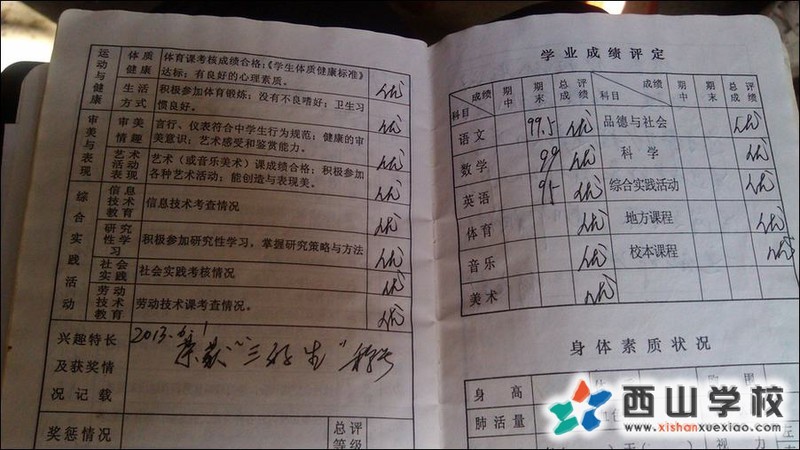 运动与健康
体质健康
体育课考核成绩合格;《学生体质健康标准》
达标;有良好的心理素质。
优
生活方式
积极参加体育锻炼;没有不良嗜好;卫生习
惯良好。
优
审美与表现
审美情趣
言行、仪表符合中学生行为规范;健康的审
美意识;艺术感受和鉴赏能力。
优
艺术活动表现
艺术(或音乐美术)课成绩合格;积极参加
各种艺术活动;能创造与表现美。
优
综合实践活动
信息技术教育
信息技术考查情况
优
研究性学习
积极参加研究性学习,掌握研究策略与方法
优
社会实践
社会实践考核情况
优
劳动技术教育
劳动技术课考查情况。
优
兴趣特长
及获奖情
况记载
2013.6.1
荣获“三好生”称号
奖惩情况
总评
等级
学业成绩评定
成绩 科目 期中 期末 总评成绩 成绩 科目 期中 期末 总评成绩
语文 99.5 优 品德与社会 优
数学 99 优 科学 优
英语 95 优 综合实践活动 优
体育 优 地方课程 优
音乐 优 校本课程 优
美术 优
身体素质状况
身高
肺活量
视力
左
西山学校
www.xishanxuexiao.com